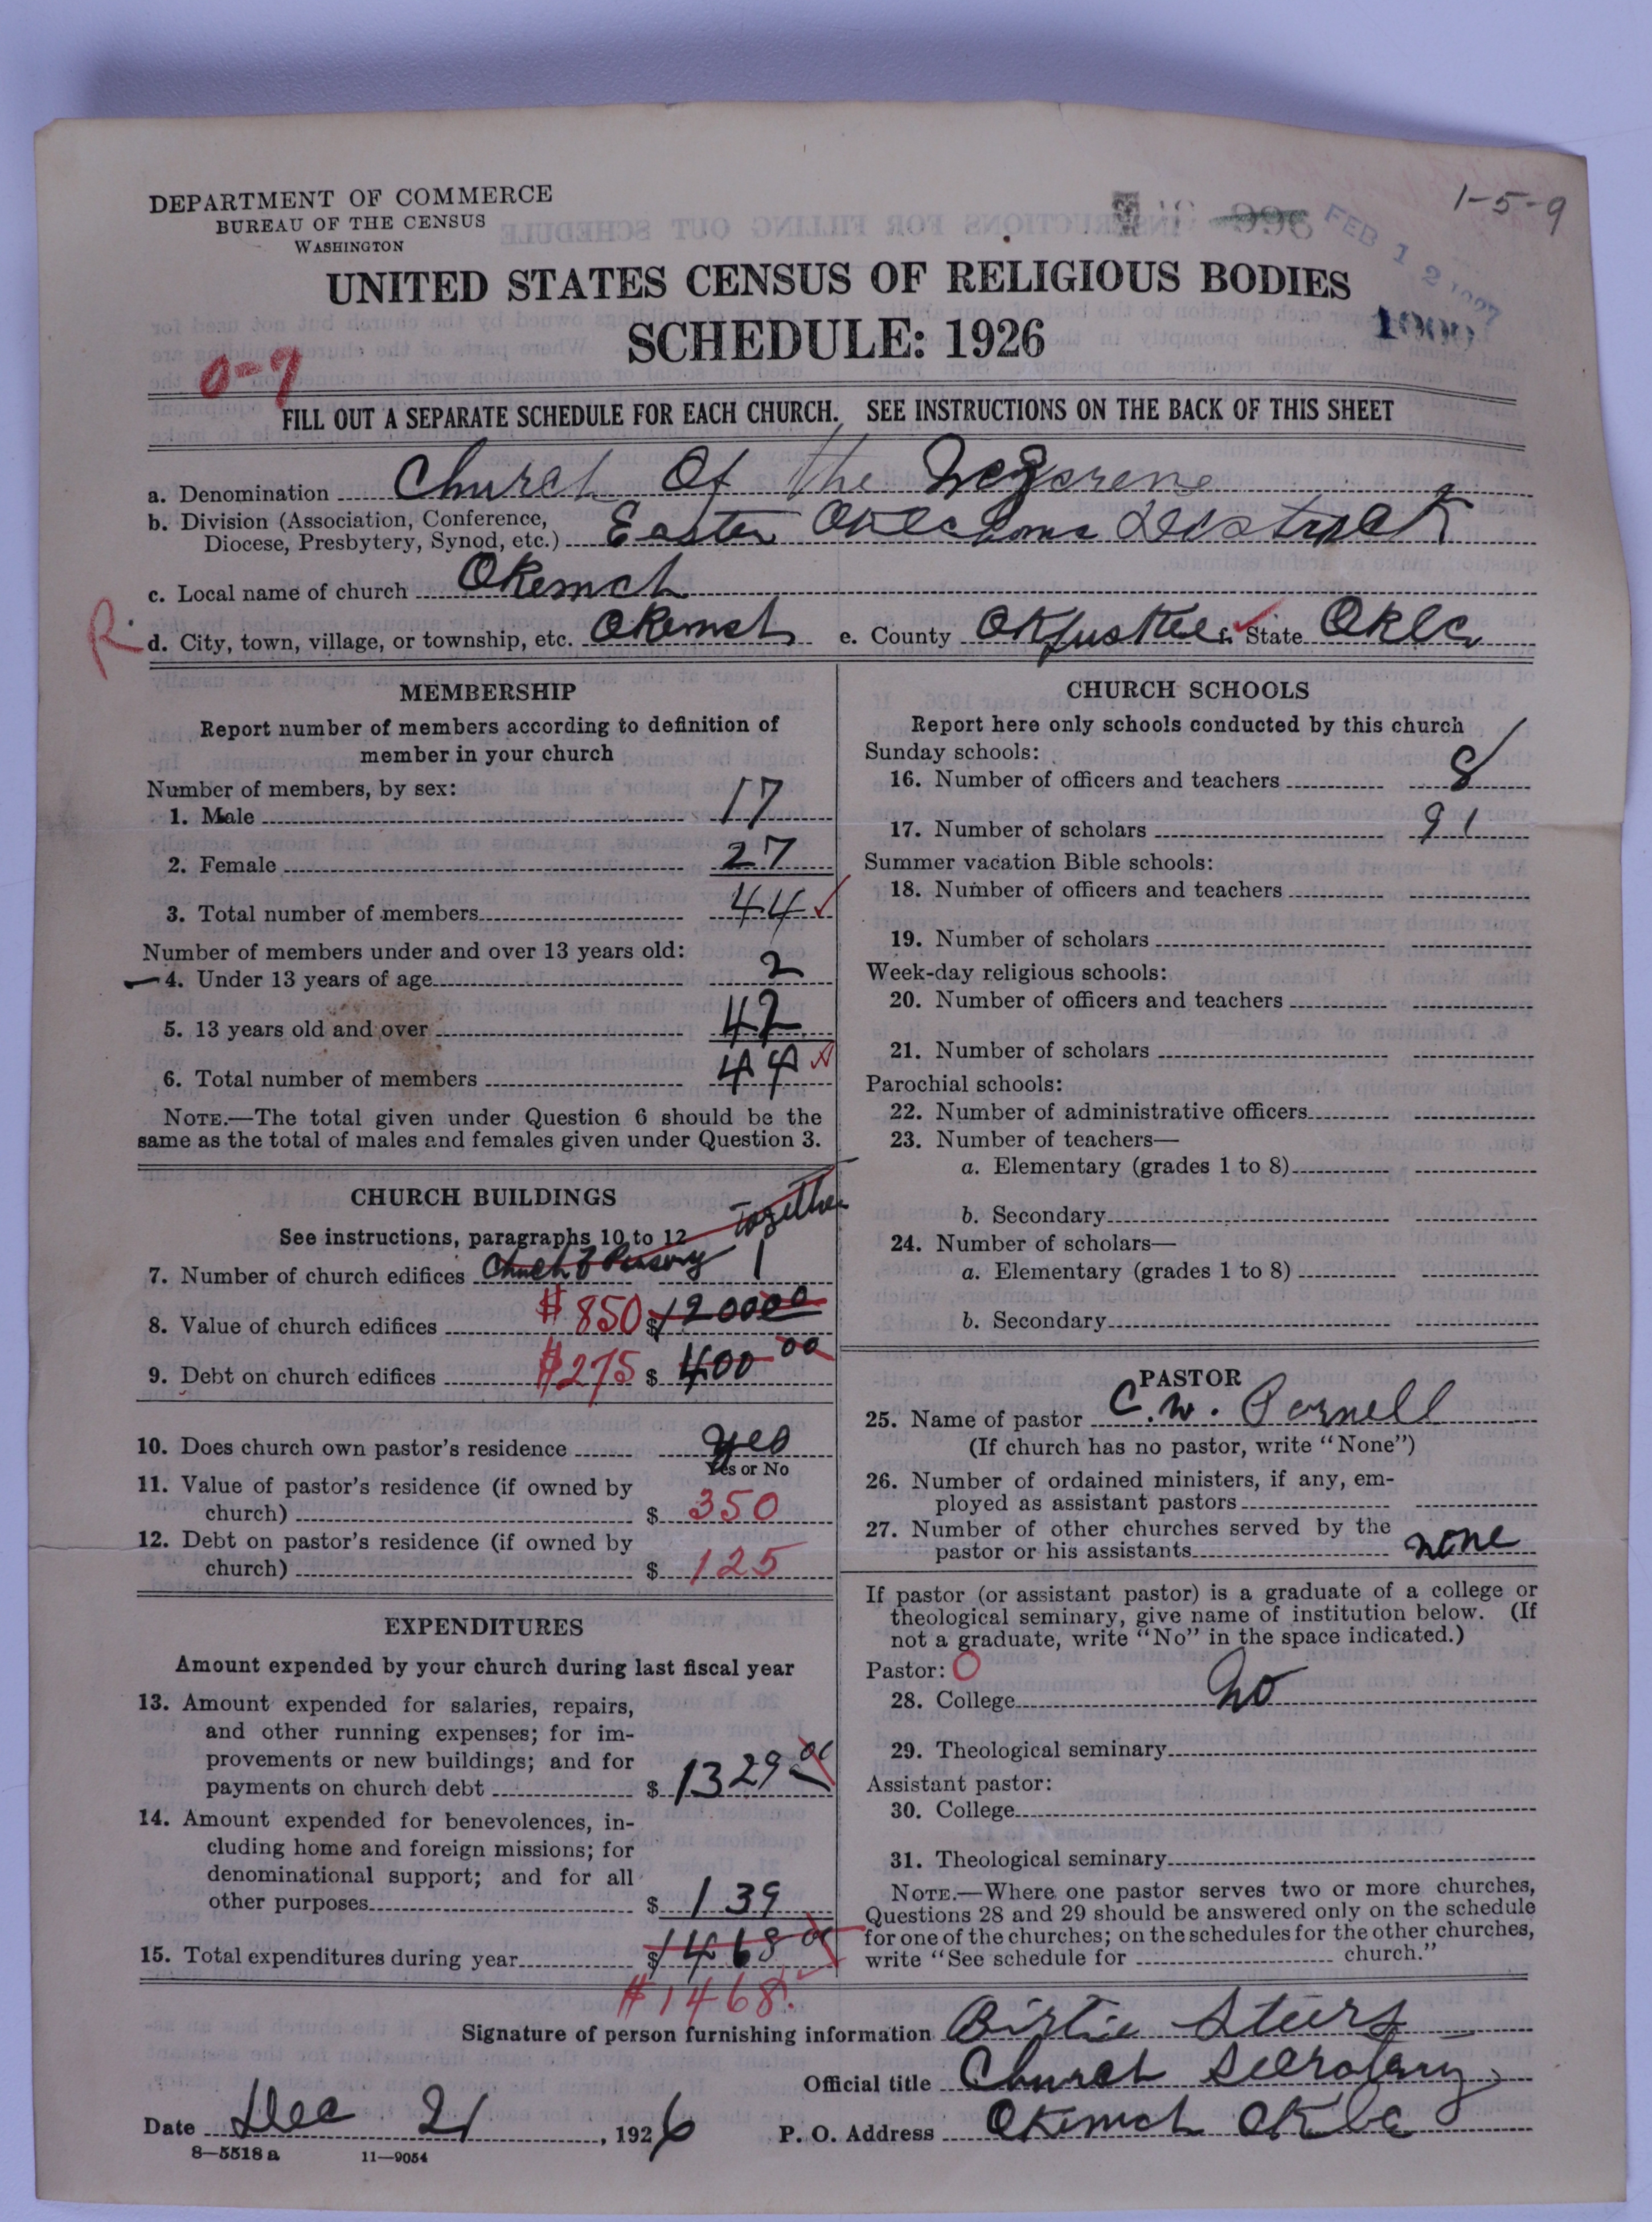 1-5-9
DEPARTMENT OF COMMERCE
BUREAU OF THE CENSUS
WASHINGTON
FEB 12 1927
UNITED STATES CENSUS OF RELIGIOUS BODIES
SCHEDULE: 1926
0-7
FILL OUT A SEPARATE SCHEDULE FOR EACH CHURCH. SEE INSTRUCTIONS ON THE BACK OF THIS SHEET
a. Denomination Church Of the Nazarene
b. Division (Association, Conference,
Diocese, Presbytery, Synod, etc.) Eastern Oklahoma Distrect
c. Local name of church Okemah
R. d. City, town, village, or township, etc. Okemah e. County Okfuskee f. State Okla
MEMBERSHIP
Report number of members according to definition of
member in your church
Number of members, by sex:
1. Male 17
2. Female 27
3. Total number of members 44
Number of members under and over 13 years old:
4. Under 13 years of age 2
5. 13 years old and over 42
6. Total number of members 44
NOTE.—The total given under Question 6 should be the
same as the total of males and females given under Question 3.
CHURCH BUILDINGS
together
See instructions, paragraphs 10 to 12
7. Number of church edifices Church & 1
8. Value of church edifices $850 $120000
9. Debt on church edifices $275 $400 00
10. Does church own pastor's residence yes
Yes or No
11. Value of pastor's residence (if owned by
church) $350
12. Debt on pastor's residence (if owned by
church) $125
EXPENDITURES
Amount expended by your church during last fiscal year
13. Amount expended for salaries, repairs,
and other running expenses; for im-
provements or new buildings; and for
payments on church debt $1329 00
14. Amount expended for benevolences, in-
cluding home and foreign missions; for
denominational support; and for all
other purposes $139
15. Total expenditures during year $1468 00
$1468.
CHURCH SCHOOLS
Report here only schools conducted by this church
Sunday schools:
16. Number of officers and teachers 8
17. Number of scholars 91
Summer vacation Bible schools:
18. Number of officers and teachers
19. Number of scholars
Week-day religious schools:
20. Number of officers and teachers
21. Number of scholars
Parochial schools:
22. Number of administrative officers
23. Number of teachers—
a. Elementary (grades 1 to 8)
b. Secondary
24. Number of scholars—
a. Elementary (grades 1 to 8)
b. Secondary
PASTOR
25. Name of pastor C. W. Parnell
(If church has no pastor, write "None")
26. Number of ordained ministers, if any, em-
ployed as assistant pastors
27. Number of other churches served by the
pastor or his assistants none
If pastor (or assistant pastor) is a graduate of a college or
theological seminary, give name of institution below. (If
not a graduate, write "No" in the space indicated.)
Pastor: O
28. College No
29. Theological seminary
Assistant pastor:
30. College
31. Theological seminary
NOTE.—Where one pastor serves two or more churches,
Questions 28 and 29 should be answered only on the schedule
for one of the churches; on the schedules for the other churches,
write "See schedule for church."
Signature of person furnishing information Birtie Steers
Official title Church Secrotary
Date Dec 21, 1926 P. O. Address Okemah Okla
8—5518 a 11—9054